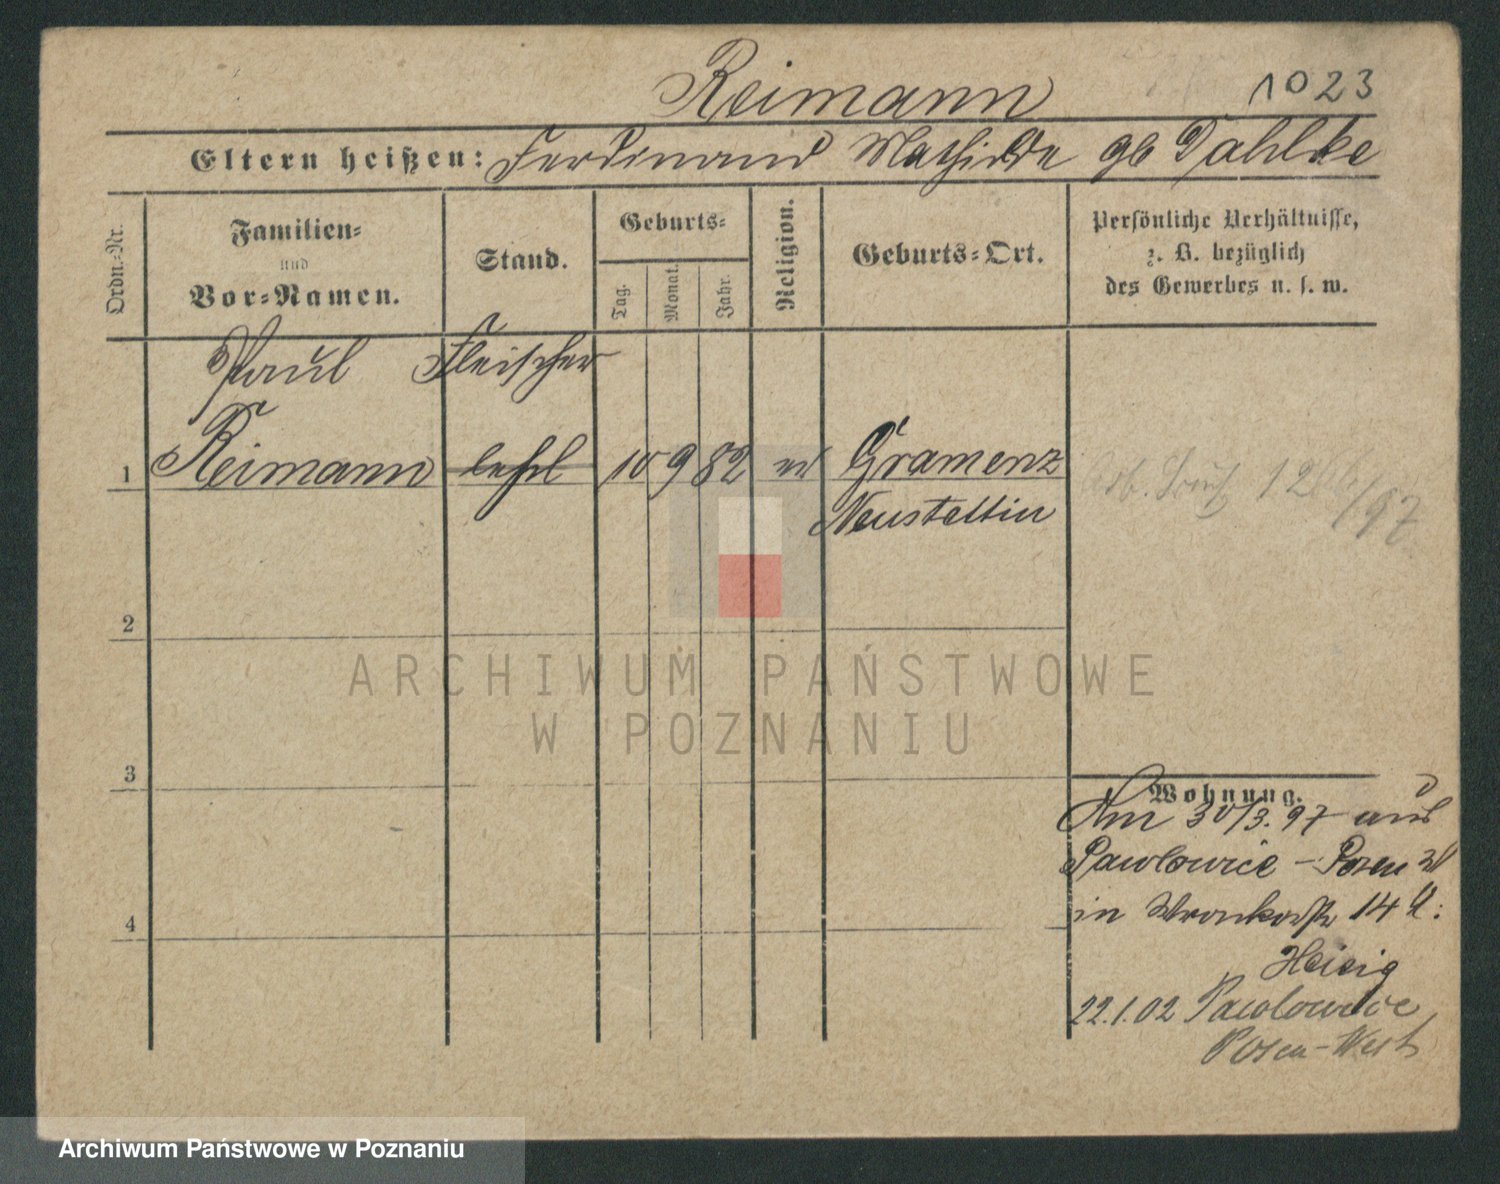 Reimann 1023
Eltern heißen: Ferdinand Mathilde gb Dahlke
Ordn.-Nr.
Familien-
und
Vor-Namen.
Stand.
Geburts-
Tag.
Monat.
Jahr.
Religion.
Geburts-Ort.
Persönliche Verhältnisse,
z. B. bezüglich
des Gewerbes u. s. w.
Paul Fleischer
1 Reimann lehrl 10 9 82 ev Gramenz
Neustettin
2
3
4
Wohnung.
Am 30/3. 97 aus
Pawlowice - Posen W
in Wronkerstr 14 b:
Heisig
22.1.02 Pawlowice
Posen-West
ARCHIWUM PAŃSTWOWE
W POZNANIU
Archiwum Państwowe w Poznaniu